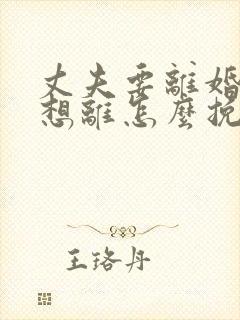 丈夫要離婚
想離怎麼挽
王珞丹